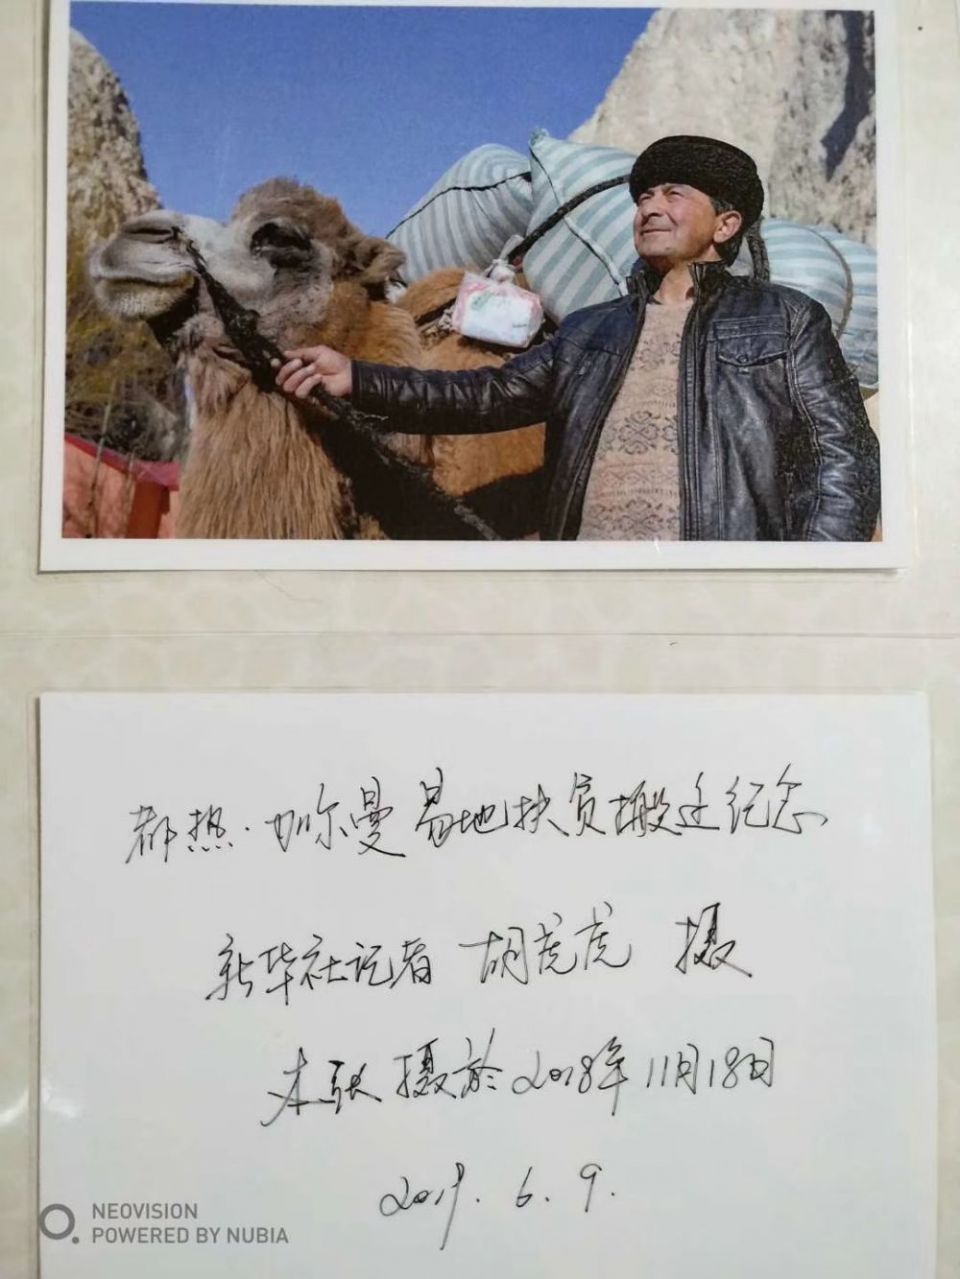 都热·加尔曼 易地扶贫搬迁纪念
新华社记者 胡虎虎 摄
本张摄於2018年11月18日
2019.6.9.
NEOVISION
POWERED BY NUBIA